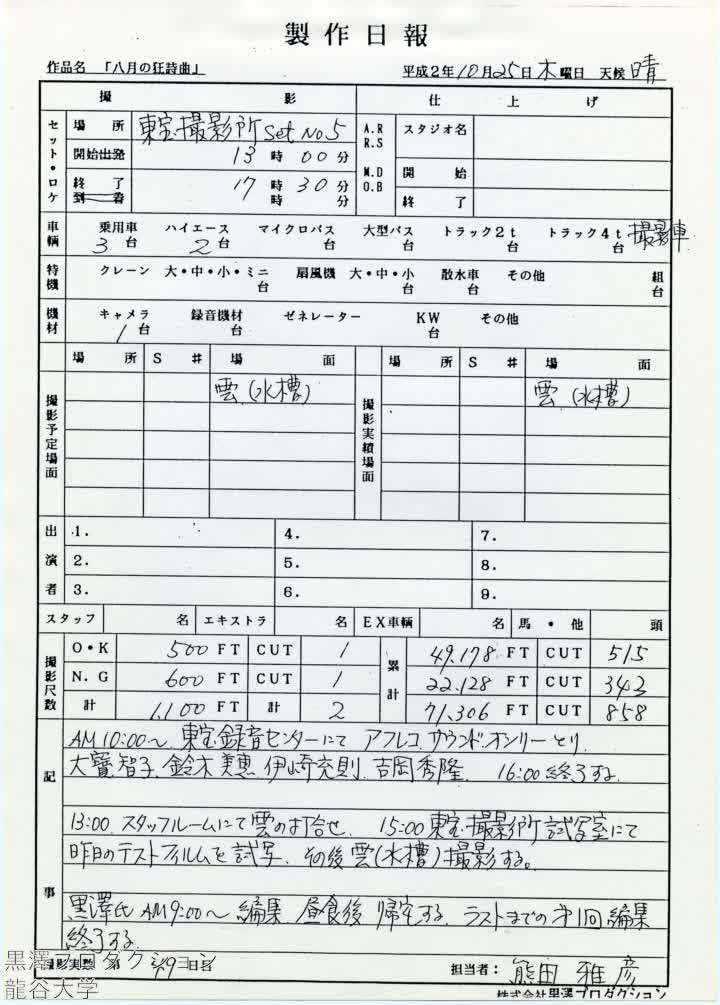 製作日報
作品名 「八月の狂詩曲」 平成2年10月25日木曜日 天候 晴
撮影 仕上げ
セット・ロケ 場所 東宝撮影所 Set No5 A.R R.S スタジオ名
開始出発 13時00分 M.D O.B 開始
終了 到着 17時30分 時分 終了
車輌 乗用車 3台 ハイエース 2台 マイクロバス 台 大型バス 台 トラック2t 台 トラック4t 台 撮影車
特機 クレーン 大・中・小・ミニ 台 扇風機 大・中・小 台 散水車 台 その他 組 台
機材 キャメラ 1台 録音機材 台 ゼネレーター KW 台 その他
場所 S# 場面 場所 S# 場面
撮影予定場面 雲(水槽) 撮影実績場面 雲(水槽)
出演者 1. 4. 7.
2. 5. 8.
3. 6. 9.
スタッフ 名 エキストラ 名 EX車輌 名 馬・他 頭
撮影尺数 O・K 500 FT CUT 1 累計 49.178 FT CUT 515
N.G 600 FT CUT 1 22.128 FT CUT 343
計 1.100 FT 計 2 71.306 FT CUT 858
記事
AM10:00〜 東宝録音センターにて アフレコ サウンドオンリーとり
大寶智子 鈴木美恵 伊崎充則 吉岡秀隆 16:00終了する
13:00 スタッフルームにて雲の打合せ 15:00東宝撮影所試写室にて
昨日のテストフィルムを試写 その後雲(水槽)撮影する。
黒澤氏 AM9:00〜 編集 昼食後 帰宅する ラストまでの第1回編集
終了する
撮影実数 日目 担当者: 熊田雅彦
株式会社黒澤プロダクション
黒澤プロダクション
龍谷大学